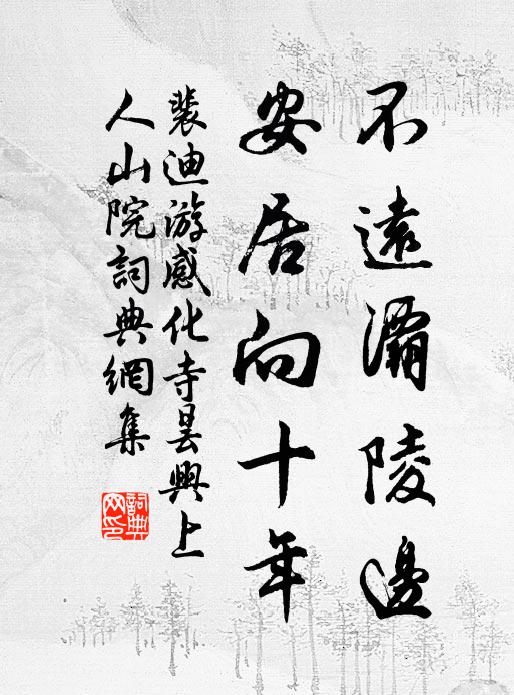 不遠灞陵邊
安居向十年
裴迪游感化寺曇興上
人山院詞典網集
詞典
网印